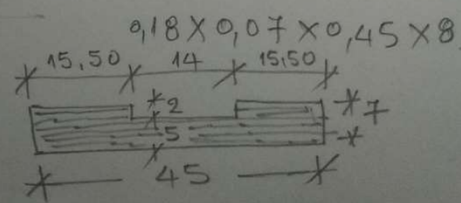 0,18×0,07×0,45×8
15,50 14 15,50
2
7
5
45